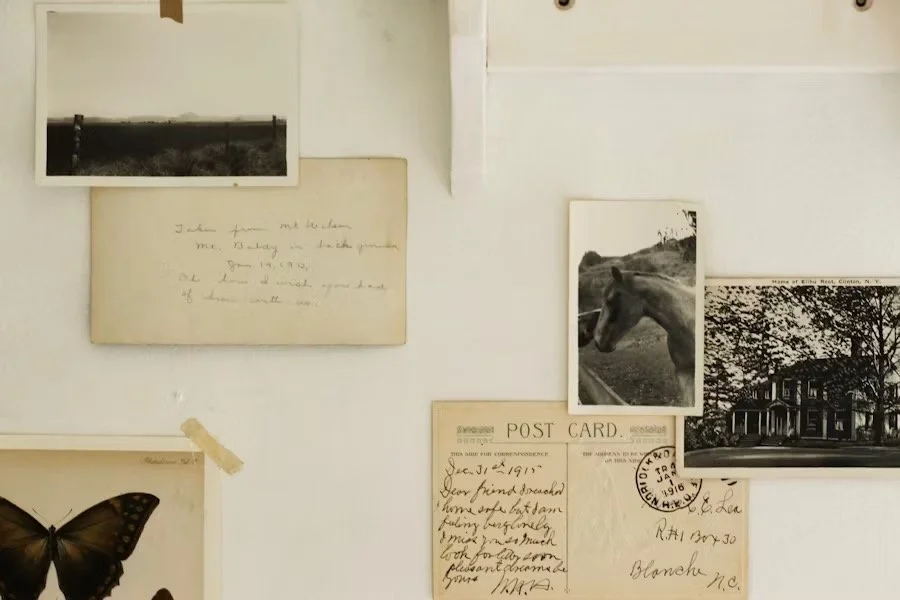 Taken from Mt Wilson
Mt. Baldy in back ground
Jan 19, 1932
Oh how I wish you had
of been with us.
Home of Elihu Root, Clinton, N. Y.
POST CARD.
THIS SIDE FOR CORRESPONDENCE
THE ADDRESS TO BE
ON THIS SIDE
Dec. 31st 1915
Dear friend I reached
home safe but I am
feeling very lonely
I miss you so much
look for letter soon
pleasant dreams be
yours
JAN
1916
C. C. Lea
R.#1 Box 30
Blanche N.C.